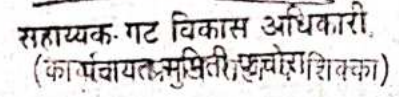 सहाय्यक गट विकास अधिकारी,
(का पंचायत समिती, पाचोरा शिक्का)